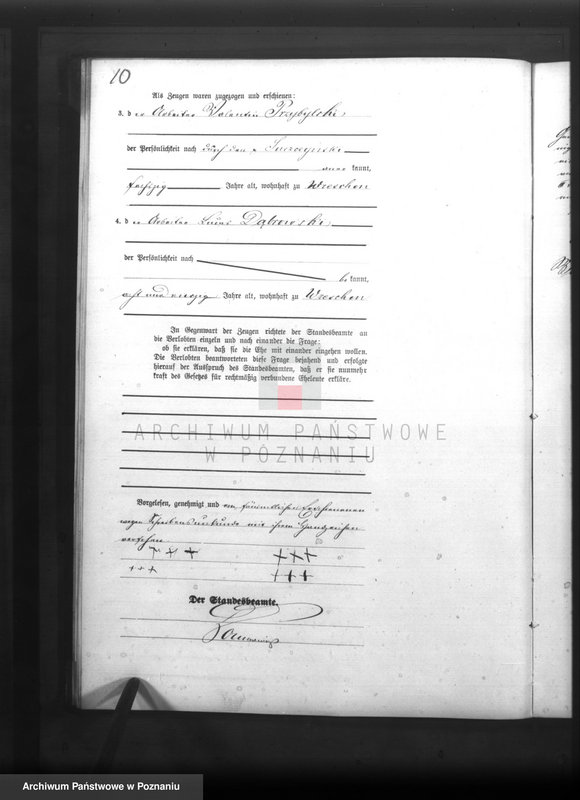 10
Als Zeugen waren zugezogen und erschienen:
3. der Arbeiter Valentin Przybylski
der Persönlichkeit nach durch den
kannt,
Jahre alt, wohnhaft zu Wreschen
4. der Arbeiter Lucas Dąbrowski
der Persönlichkeit nach
be kannt,
acht und Jahre alt, wohnhaft zu Wreschen
In Gegenwart der Zeugen richtete der Standesbeamte an
die Verlobten einzeln und nach einander die Frage:
ob sie erklärten, daß sie die Ehe mit einander eingehen wollen.
Die Verlobten beantworteten diese Frage bejahend und erfolgte
hierauf der Ausspruch des Standesbeamten, daß er sie nunmehr
kraft des Gesetzes für rechtmäßig verbundene Eheleute erkläre.
ARCHIWUM PAŃSTWOWE
W POZNANIU
Vorgelesen, genehmigt und von sämmtlichen Erschienenen
wegen Schreibensunkunde mit ihrem Handzeichen
versehen
+++ +++
+++ +++
Der Standesbeamte.
Archiwum Państwowe w Poznaniu